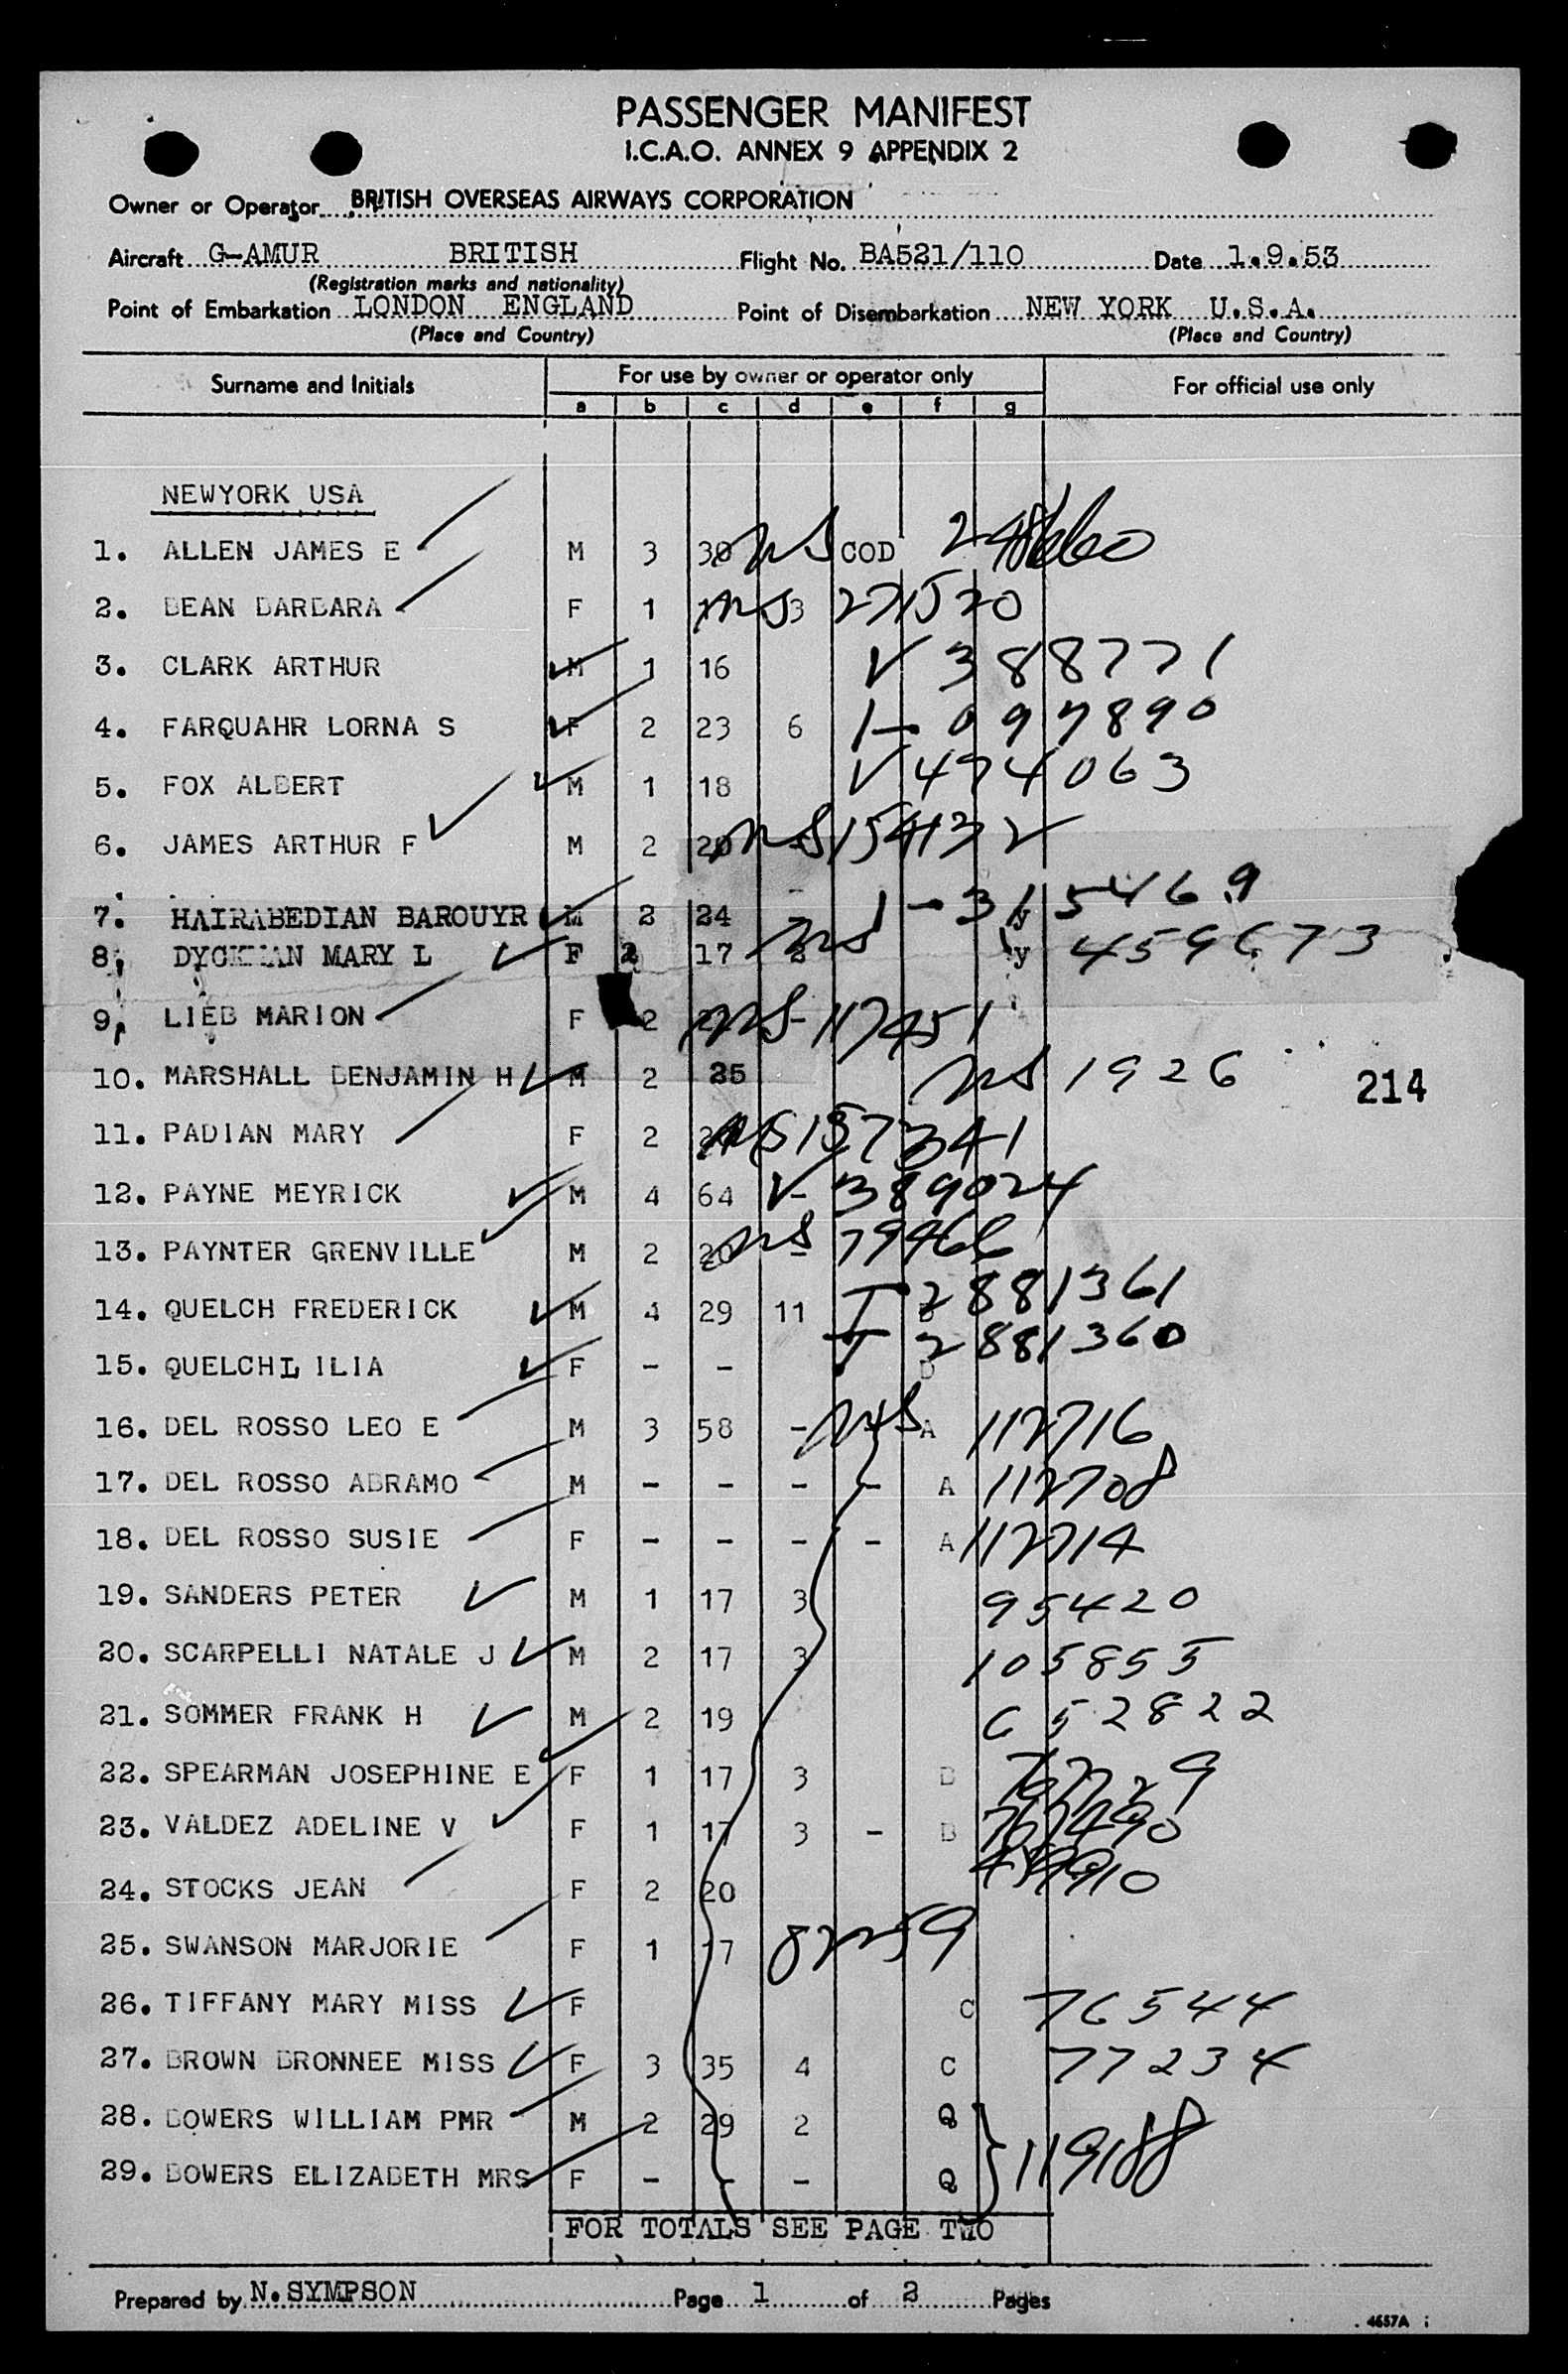 PASSENGER MANIFEST
I.C.A.O. ANNEX 9 APPENDIX 2
Owner or Operator BRITISH OVERSEAS AIRWAYS CORPORATION
Aircraft G-AMUR BRITISH Flight No. BA521/110 Date 1.9.53
(Registration marks and nationality)
Point of Embarkation LONDON ENGLAND Point of Disembarkation NEW YORK U.S.A.
(Place and Country) (Place and Country)
Surname and Initials For use by owner or operator only For official use only
a b c d e f g
NEWYORK USA
1. ALLEN JAMES E M 3 30 COD
2. BEAN BARBARA F 1 3 271520
3. CLARK ARTHUR M 1 16 V 388771
4. FARQUAHR LORNA S F 2 23 6 1-097890
5. FOX ALBERT M 1 18 V 474063
6. JAMES ARTHUR F M 2 20 154132
7. HAIRABEDIAN BAROUYR M 2 24 1-315469
8. DYCKMAN MARY L F 2 17 y 459673
9. LIEB MARION F 2 - 117451
10. MARSHALL BENJAMIN H M 2 25 1926
214
11. PADIAN MARY F 2 157341
12. PAYNE MEYRICK M 4 64 - V 389024
13. PAYNTER GRENVILLE M 2 20 - 79466
14. QUELCH FREDERICK M 4 29 11 I 2881361
15. QUELCHL ILIA F - - I 2881360
16. DEL ROSSO LEO E M 3 58 - A 112716
17. DEL ROSSO ABRAMO M - - - - A 112708
18. DEL ROSSO SUSIE F - - - - A 112714
19. SANDERS PETER M 1 17 3 95420
20. SCARPELLI NATALE J M 2 17 3 105855
21. SOMMER FRANK H M 2 19 C 52822
22. SPEARMAN JOSEPHINE E F 1 17 3 B
23. VALDEZ ADELINE V F 1 17 3 - B
24. STOCKS JEAN F 2 20
25. SWANSON MARJORIE F 1 17 82259
26. TIFFANY MARY MISS F C 76544
27. BROWN BRONNEE MISS F 3 35 4 C 77234
28. BOWERS WILLIAM PMR M 2 29 2 Q
29. BOWERS ELIZABETH MRS F - - - Q 119188
FOR TOTALS SEE PAGE TWO
Prepared by N.SYMPSON Page 1 of 2 Pages
4657A